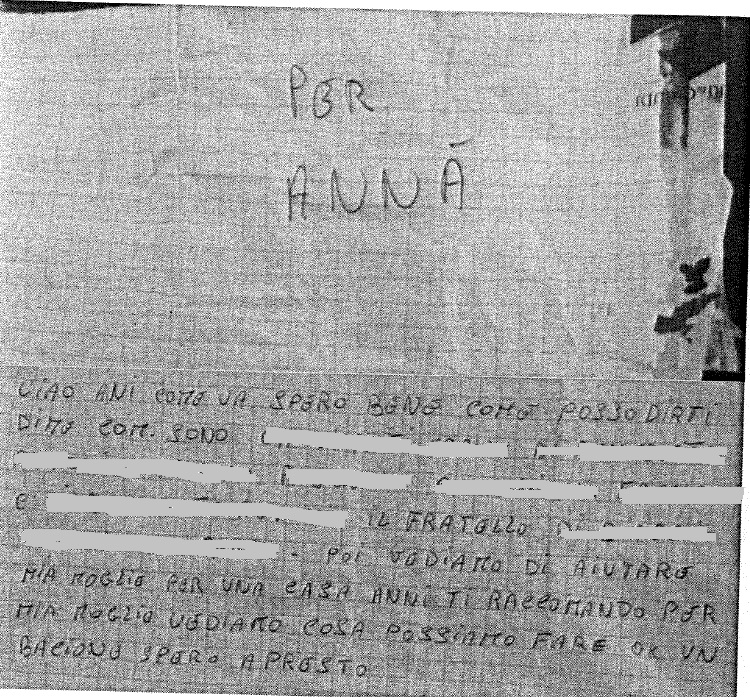 PER
ANNÃ
CIAO ANI COME VA SPERO BENE COME POSSO DIRTI
DIMO COM. SONO
E IL FRATELLO DI
- POI VEDIAMO DI AIUTARE
MIA MOGLIE PER UNA CASA ANNI TI RACCOMANDO PER
MIA MOGLIE VEDIAMO COSA POSSIAMO FARE OK UN
BACIONE SPERO APRESTO